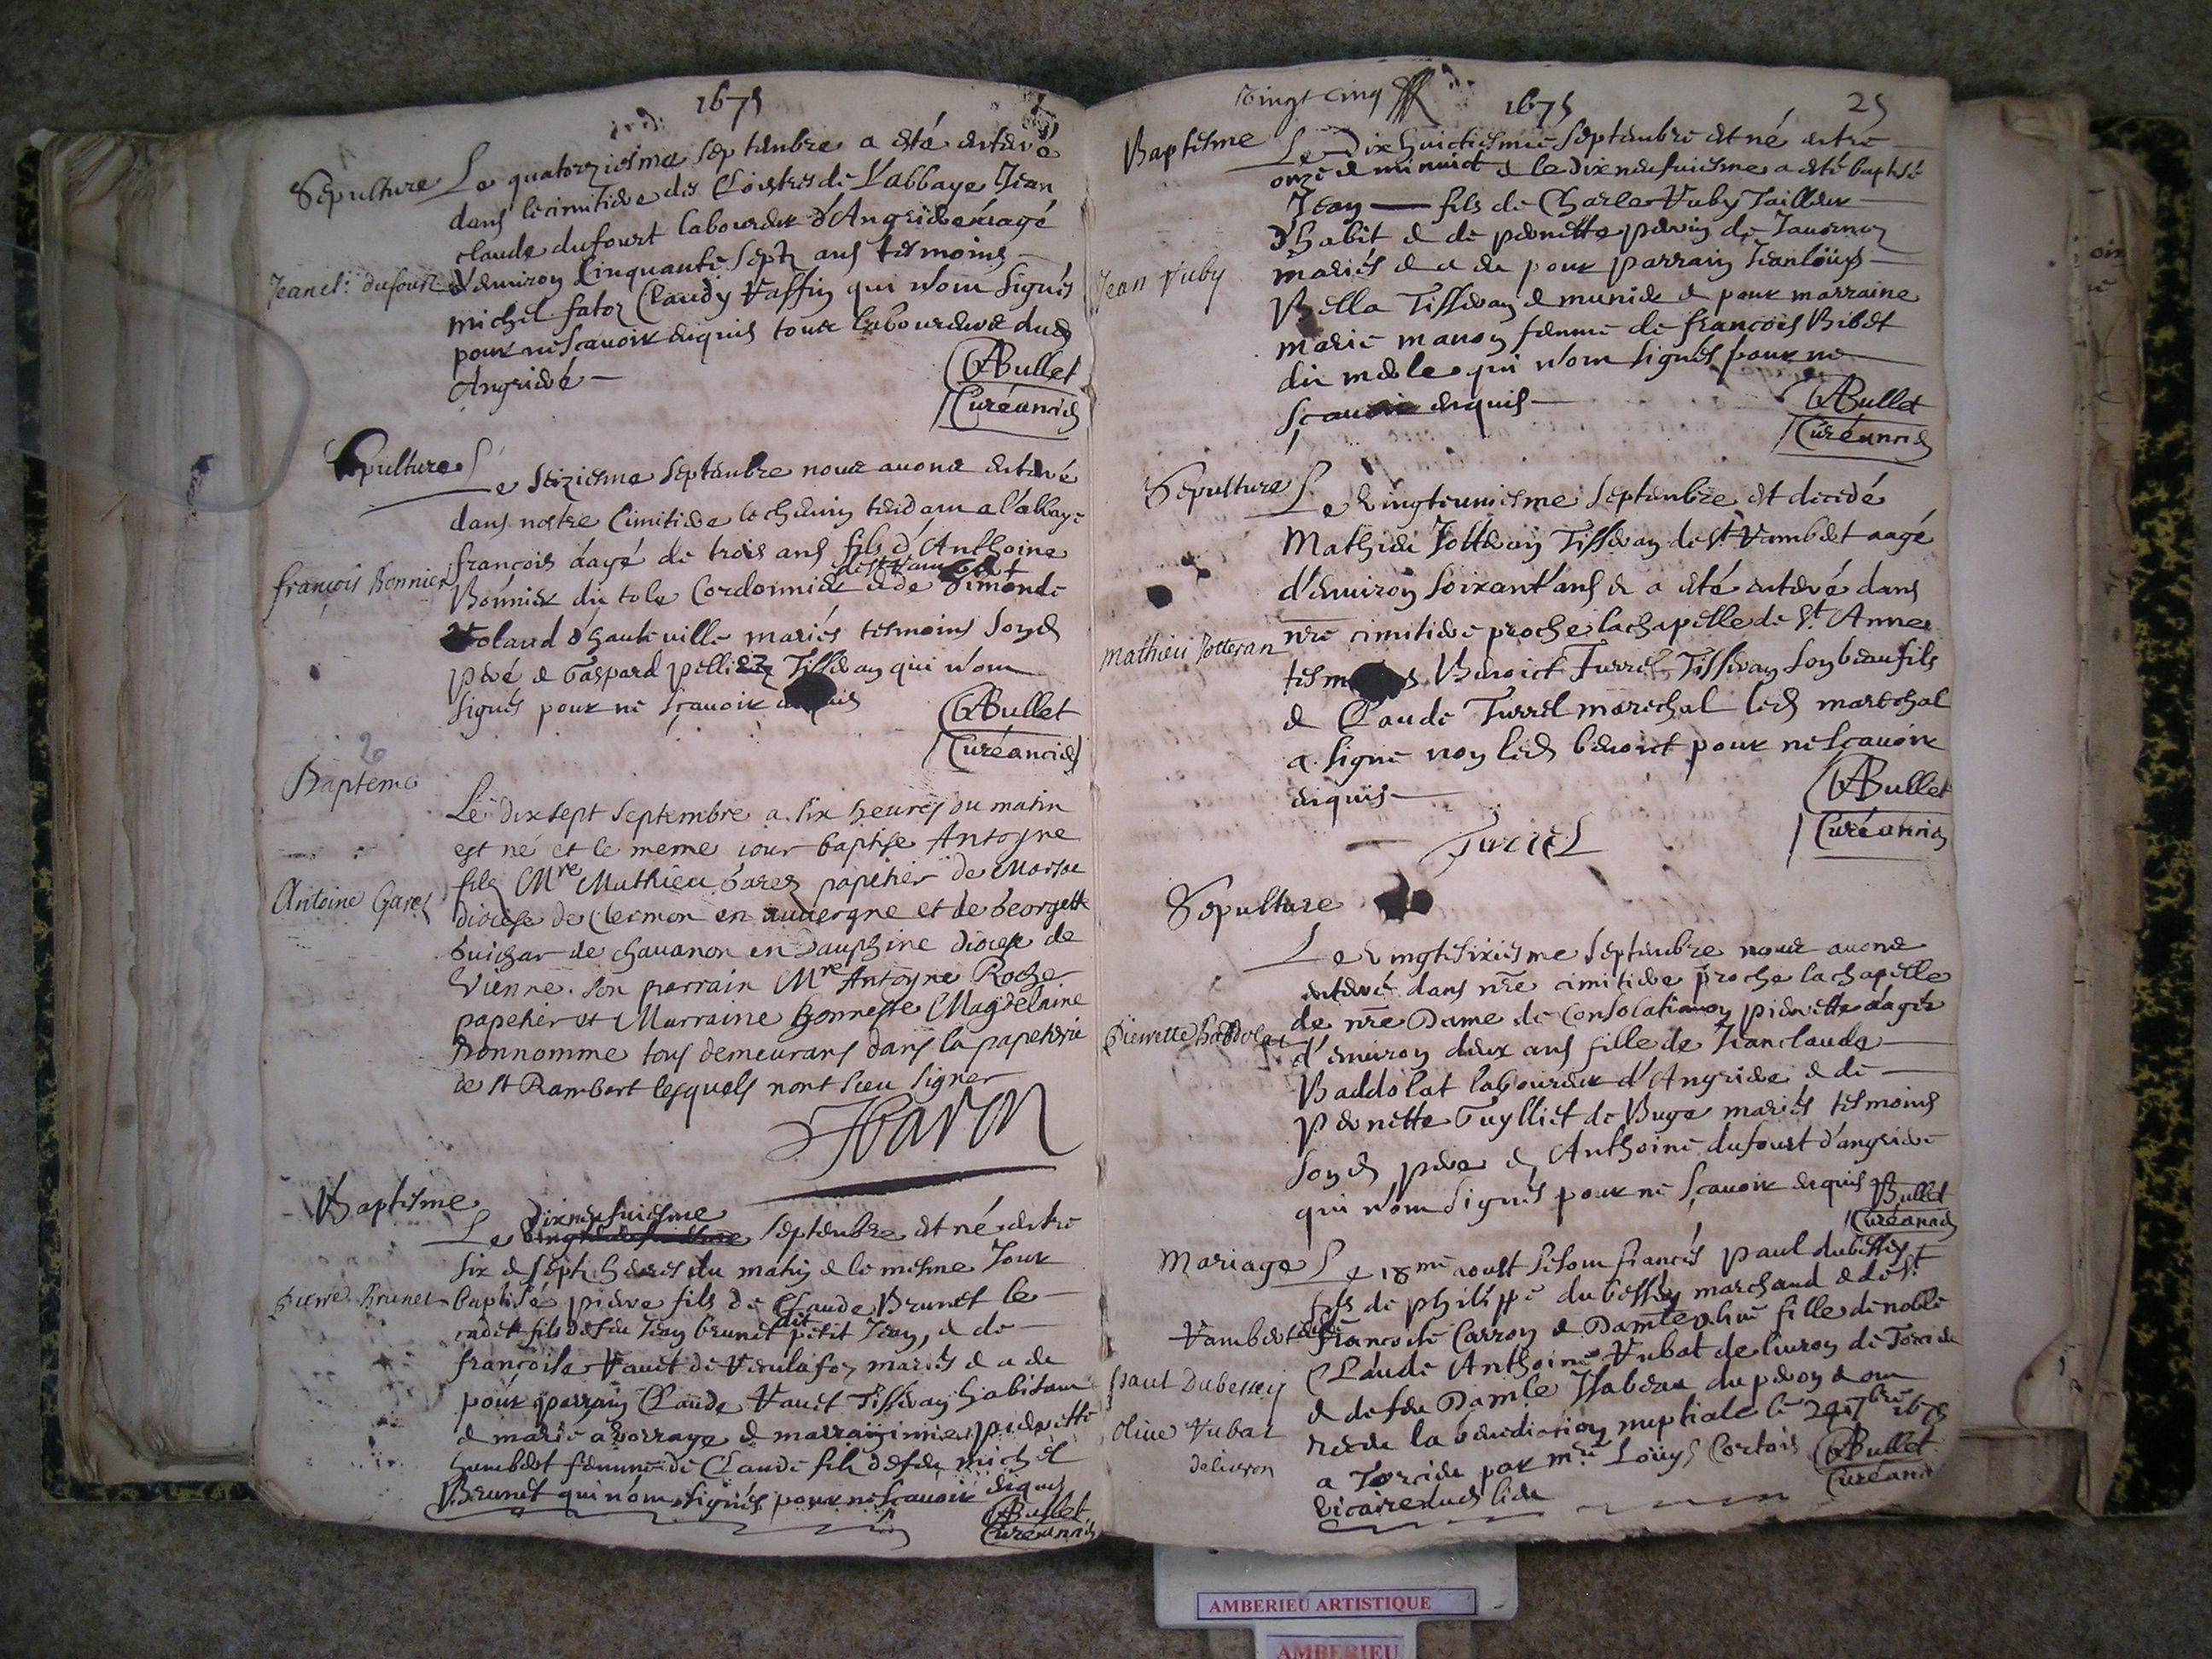 1675
Sepulture Le quatorziesme septembre a esté enterré
dans le cimitiere des Cloistres de L'abbaye Jean
claude dufourt laboureur d'Angrieres aagé
Jean cl: dufourt d'environ Cinquante sept ans tesmoins
michel fator Claudy Vaffin qui n'ont signés
pour ne sçavoir enquis tous laboureurs dud
Angriere
ABullet
Curé ancien
Sepulture Le seiziesme septembre nous avons enterré
dans nostre Cimitiere le chemin tendant a l'abbaye
françois aagé de trois ans fils d'Anthoine
de St Rambert
françois Bonnier Bonnier du tole Cordonnier et de Simonde
Rolaud d'hauteville mariés tesmoins son d
peré et Gaspard Tisseran qui n'ont
signés pour ne sçavoir enquis
ABullet
Curé ancien
20
Bapteme
Le dix sept septembre a six heures du matin
est né et le meme iour baptise Antoyne
filz Mre Mathieu Garez papetier de Morsac
Antoine Garez diocese de Clermon en auvergne et de Georgette
Guichar de chavanon en Dauphine diocese de
Vienne. Son parrain Mre Antoyne Roche
papetier et Marraine honneste Magdelaine
bonnomme tous demeurans dans la papeterie
de St Rambert lesquels nont sceu signer
Baptesme
dixneufuiesme
Le septembre est né entre
six et sept heures du matin et le mesme Jour
Pierre Brunet baptisé pierre fils de Claude Brunet le
cadet fils de feu Jean brunet dit petit Jean, et de
françoise Vauet de mariés et a eu
pour parrain Claude Vauet Tisseran habitant
et marié a et marraine pierrette
humbert femme de Claude fils de feu michel
Brunet qui n'ont signés pour ne sçavoir enquis
ABullet
Curé ancien
Vingt cinq 1675 25
Baptesme Le Dix huictiesme septembre est né entre
onze et minuict et le dix neufuiesme a esté baptisé
Jean fils de Charles Vuby Tailleur
d'habit et de pernette perrin de Tavernoz
Jean Vuby mariés et a eu pour parrain Jean loüys
Bella Tisseran et et pour marraine
marie manon femme de françois Bibet
du mesle qui n'ont signés pour ne
sçavoir enquis
ABullet
Curé ancien
Sepulture Le vingtcuniesme septembre est decedé
Mathieu Jotteran Tisseran de St Rambert aagé
d'environ soixant'ans et a eté enterré dans
mathieu Jotteran nre cimitiere proche la chapelle de St Anne
tesmoins Benoict Turrel Tisseran son beaufils
et Claude Turrel marechal led marechal
a signé non led benoict pour ne sçavoir
enquis
ABullet
Curé ancien
Turrel
Sepulture
Le vingtsixiesme septembre nous avons
enterré dans nre cimitiere proche la chapelle
de nre Dame de Consolation pierrette aagée
Pierrette baddolat d'environ deux ans fille de Jean claude
Baddolat laboureur d'Angriere et de
pernette Guylliet de Buge mariés tesmoins
son d pere et Anthoine dufourt d'angriere
qui n'ont signés pour ne sçavoir enquis
ABullet
Curé ancien
Mariage Le 18me aoust se sont fiancés paul dubessey
fils de philippe dubessey marchand de St
Rambert et de francoise Carron et Damlle olive fille de noble
Claude Anthoine Vubat de livron de Torcieu
Paul Dubessey et de feu Damlle Isabeau duperon et ont
Olive Vubat receu la benediction nuptiale le 24 7bre 1675
de livron a Torcieu par mre Loüys Cortois
vicaire dud lieu
ABullet
Curé ancien
AMBERIEU ARTISTIQUE
AMBERIEU